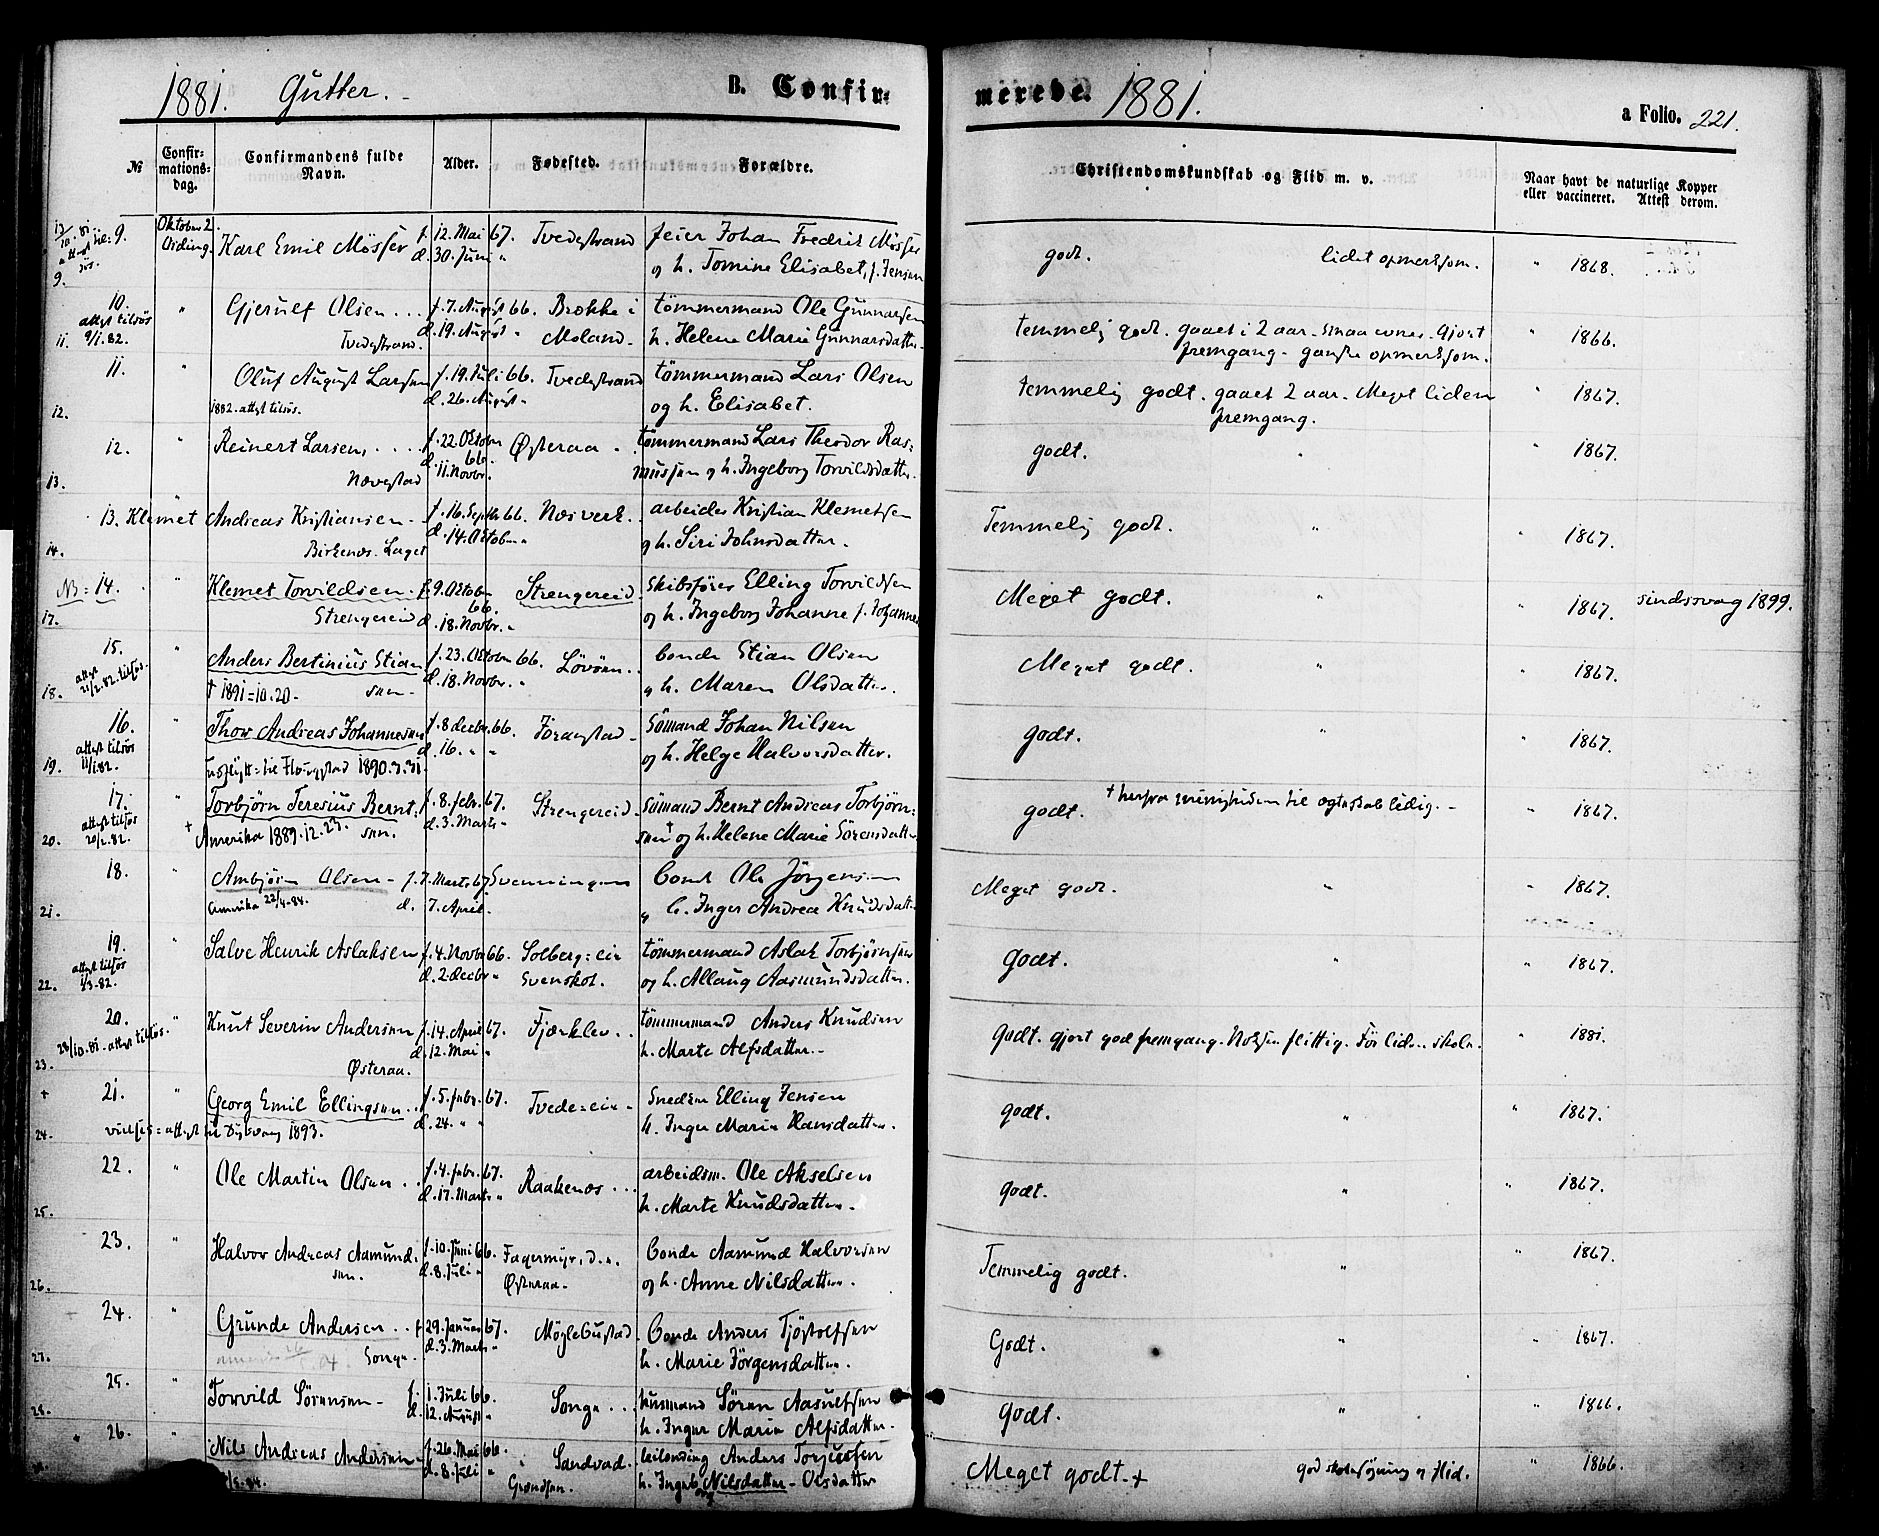 1881. Gutter. B. Confir-
merede. 1881. a Folio. 221.
№ Confir-mations-dag. Confirmandens fulde Navn. Alder. Fødested. Forældre.
Christendomskundskab og Flid m. v. Naar havt de naturlige Kopper eller vaccineret. Attest derom.
9. Oktober 2. Karl Emil Mösser f. 12. Mai 67. Tvedestrand feier Johan Fredrik Mösser
9. d. 30. Juni " og h. Tomine Elisabet, f. Jensen
godt. lidet opmerksom. " 1868.
10. " Gjerulf Olsen ... f. 7. August 66. Brække i tömmermand Ole Gunnarsen
11. attest tilsös 9/1.82. Tvedestrand. d. 19. August " Moland. h. Helene Marie Gunnarsdatter.
temmelig godt. gaaet i 2 aar. smaa evner. Gjort " 1866.
fremgang. ganske opmerksom.
11. " Oluf August Larsen f. 19. Juli 66. Tvedestrand tömmermand Lars Olsen
12. 1882. attest tilsös. d. 26. August " og h. Elisabet.
temmelig godt. gaaet 2 aar. Meget liden " 1867.
fremgang.
12. " Reinert Larsen, .... f. 22. Oktober 66. Østeraa tömmermand Lars Theodor Ras-
13. Nævestad d. 11. Novbr. mussen og h. Ingeborg Torvildsdatter.
godt. " 1867.
13. Klemet Andreas Kristiansen f. 16. Septbr 66. Næsverk. arbeider Kristian Klemetsen
14. Birkenes. Laget d. 14. Oktober " og h. Siri Johnsdatter.
Temmelig godt. " " 1867.
NB: 14. " Klemet Torvildsen f. 9. Oktober 66. Strengereid. Skibsförer Elling Torvildsen
17. Strengereid d. 18. Novbr. " og h. Ingeborg Johanne f. Johannes
Meget godt. " " 1867. sindssvag 1899.
15. " Anders Bertinius Stian f. 23. Oktober 66. Lövöen bonde Stian Olsen
18. attest 21/2.82. tilsös. † 1891=10.20- sen- d. 18. Novbr. " " h. Maren Olsdatter.
Meget godt. " " 1867.
16. " Thor Andreas Johannesen f. 8 decbr. 66. Sömand Johan Nilsen
19. attest tilsös 11/1.82. 1890.3.31. d. 16. " " og h. Helge Halvorsdatter.
godt. " " 1867.
17. " Torbjørn Teresius Bernt- f. 8. febr. 67. Strengereid Sömand Bernt Andreas Torbjørn-
20. attest tilsös 20/2.82. † Amerika 1889.12.23. sen. d. 3. Marts " sen † og h. Helene Marie Sörensdatter
godt. " 1867.
18. " Ambjörn Olsen f. 7. Marts 67 Svenningen bonde Ole Jörgensen
21. Amerika 22/4.84. d. 7. April. " h. Inger Andrea Knudsdatter
Meget godt. " " 1867.
19. " Salve Henrik Aslaksen f. 4. Novbr 66. Solberg: ein tömmermand Aslak Torbjørnsen
22. attest tilsös 1/3.82. d. 2. decbr " Svenskot. og h. Allaug Aasmundsdatter.
Godt. " " 1867.
20. " Knut Severin Andersen f. 14. April 67. Fjærklev tömmermand Anders Knudsen
23. 28/10.81. attest tilsös. Østeraa. d. 12. Mai " h. Marte Alfsdatter.
Godt. gjort god fremgang. Noksaa flittig. Før liden skole. " 1881.
21. " Georg Emil Ellingsen f. 5. febr. 67. Tvede=ein Snedker Elling Jensen
24. attest til Dybvaag 1893. d. 24. " " h. Inger Marie Hansdatter.
godt. " " 1867.
22. " Ole Martin Olsen .. f. 4. febr. 67. Raakenæs ... arbeidsm. Ole Akselsen
25. d. 17. Marts " h. Marte Knudsdatter.
godt. " " 1867.
23. " Halvor Andreas Aamund- f. 10. Juni 66. Fagermyr, bonde Aamund Halvorsen
26. sen. d. 8. Juli " Østeraa. og h. Anne Nilsdatter.
Temmelig godt. " " 1867.
24. " Grunde Andersen .. f. 29. Januar 67. Möglebustad bonde Anders Tjöstolfsen
27. Songe. d. 3. Marts " h. Marie Jörgensdatter.
Godt. " " 1867.
25. " Torvild Sörensen f. 1. Juli 66. Songe ... husmand Sören Aasulfsen
28. d. 12. August " h. Inger Marie Alfsdatter.
Godt. " " 1866.
26. Nils Andreas Andersen f. 26. Mai 66. Sandvad. Anders Torjussen
d. 8. Juli " h. Ingeborg Nilsdatter - Olsdatter
Meget godt. + god skolesøgning og flid. " 1866.